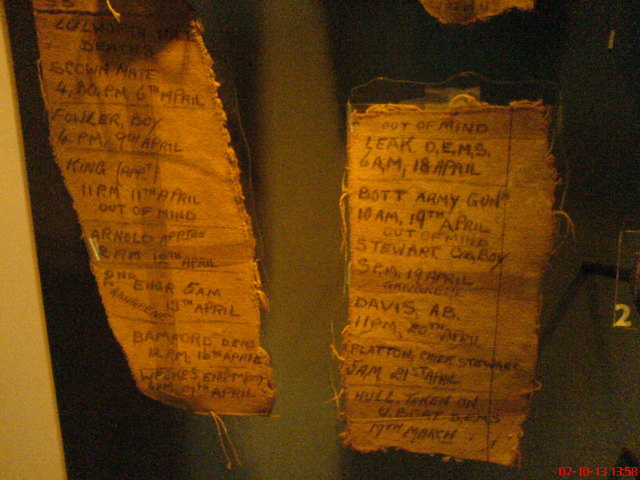 LULWORTH HILL
DEATHS
SCOWN MATE
4,20,PM 6TH APRIL
FOWLER, BOY
4 PM, 9TH APRIL
KING (APPT)
11PM 11TH APRIL
OUT OF MIND
ARNOLD APPTCE
12TH APRIL
2ND ENGR 5AM
GANGRENE
13TH APRIL
BAMFORD, DEMS
12 PM, 16TH APRIL
WEEKES
17TH APRIL
OUT OF MIND
LEAK D,E,M,S,
6 A,M, 18 APRIL
BOTT ARMY GUNR
10AM, 19TH APRIL
OUT OF MIND
STEWART BOY
5 P,M, 19 APRIL
GANGRENE
DAVIS, AB,
11PM, 20TH APRIL
PLATTON, CHIEF STEWARD
5AM, 21ST APRIL
HULL, TAKEN ON
U. BOAT D,EMS
19TH MARCH
2
07-10-13 13:58